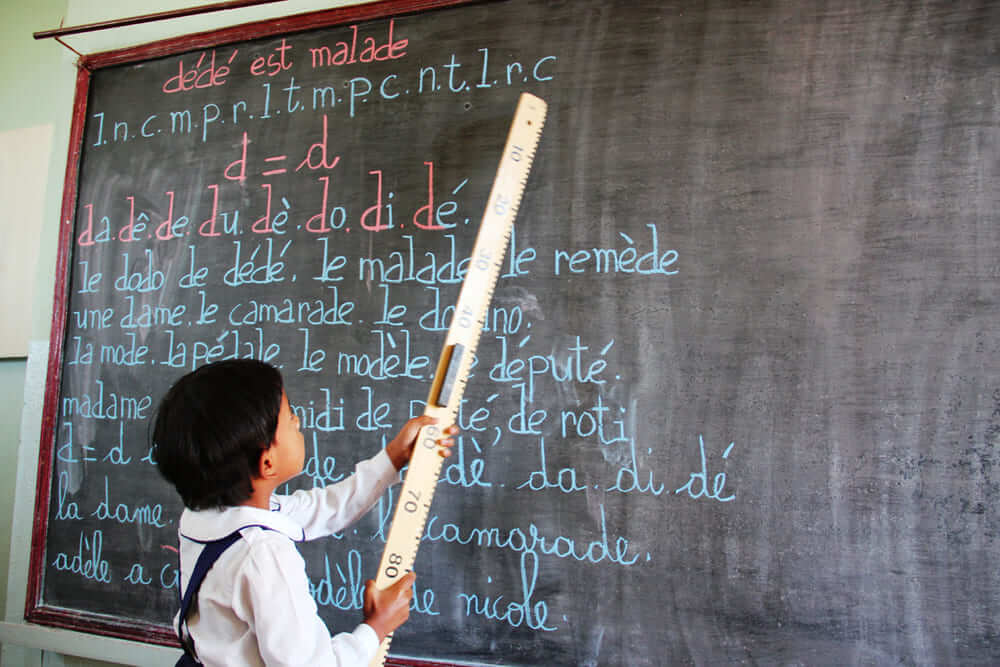 dédé est malade
l.n.c.m.p.r.l.t.m.p.c.n.t.l.r.c
d = d
da.dê.de.du.dè.do.di.dé.
le dodo de dédé. le malade le remède
une dame. le camarade. le
la mode. la pédale. le modèle. député.
madame midi de pâté, de roti
d = d dè. da. di. dé
la dame. camarade.
adèle a modèle de nicole.
10
20
30
40
60
70
80